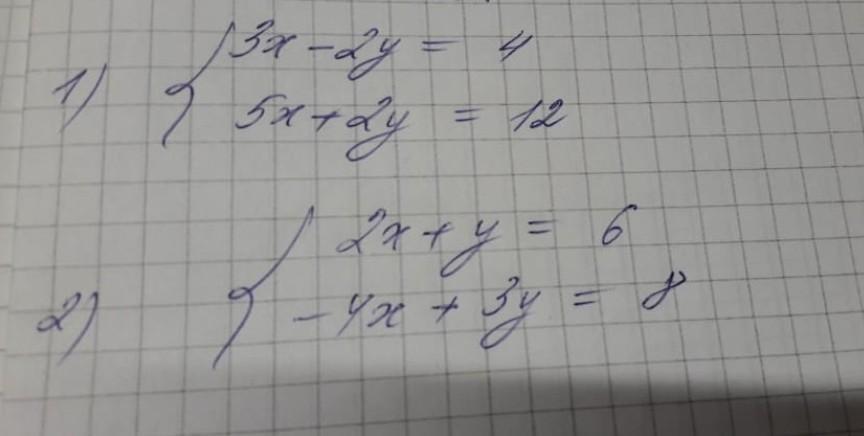 1) { 3x - 2y = 4
5x + 2y = 12
2) { 2x + y = 6
- 4x + 3y = 8